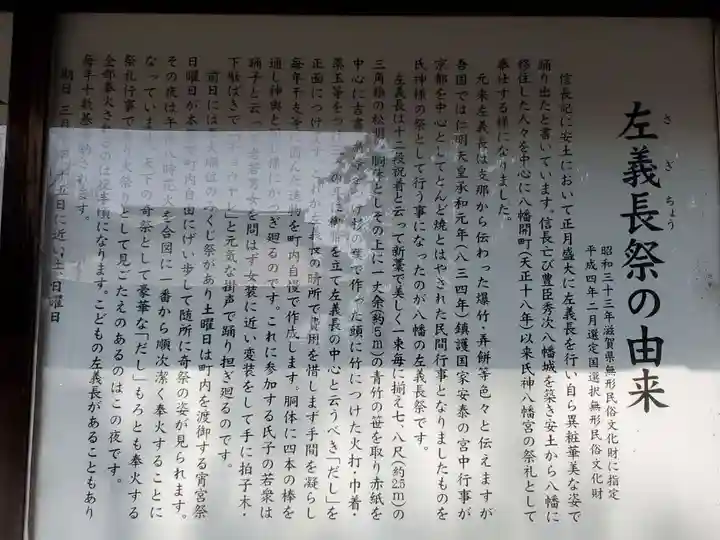 左義長祭の由来
さぎちょう
昭和三十三年滋賀県無形民俗文化財に指定
平成四年二月選定国選択無形民俗文化財
信長記に安土において正月盛大に左義長を行い自ら異粧華美な姿で
踊り出たと書いています。信長亡び豊臣秀次八幡城を築き安土から八幡に
移住した人々を中心に八幡開町(天正十八年)以来氏神八幡宮の祭礼として
奉仕する様になりました。
元来左義長は支那から伝わった爆竹・弄餅等色々と伝えますが
吾国では仁明天皇承和元年(八三四年)鎮護国家安泰の宮中行事が
京都を中心としてとんど焼とはやされた民間行事となりましたものを
氏神様の祭として行う事になったのが八幡の左義長祭です。
左義長は十二段祝着と云って新藁で美しく一束毎に揃え七、八尺(約2.5m)の
三角錐の松明を胴体としその上に一丈余(約5m)の青竹の笹を取り赤紙を
中心に古書 杉の葉で作った頭に竹につけた火打・巾着・
薬玉等をつ を立て左義長の中心と云うべき「だし」を
正面につけ の勝所で費用を惜しまず手間を凝らし
毎年干支等に因んだ造物を町内自慢で作成します。胴体に四本の棒を
通し神輿と同じ様にかつぎ廻るのです。これに参加する氏子の若衆は
踊子と云って老若男女を問はず女装に近い変装をして手に拍子木・
下駄ばきで「チョウヤレ」と元気な掛声で踊り担ぎ廻るのです。
前日には くじ祭があり土曜日は町内を渡御する宵宮祭
日曜日が本 町内自由にげい歩して随所に奇祭の姿が見られます。
その夜は午後八時花火を合図に一番から順次奉火することに
なっています。天下の奇祭として豪華な「だし」もろとも奉火する
祭礼行事で 火祭りとして見ごたえのあるのはこの夜です。
全部奉火されるのは 頃になります。こどもの左義長があることもあり
毎年十数基 ます。
期日 三月 十五日に近い土・日曜日